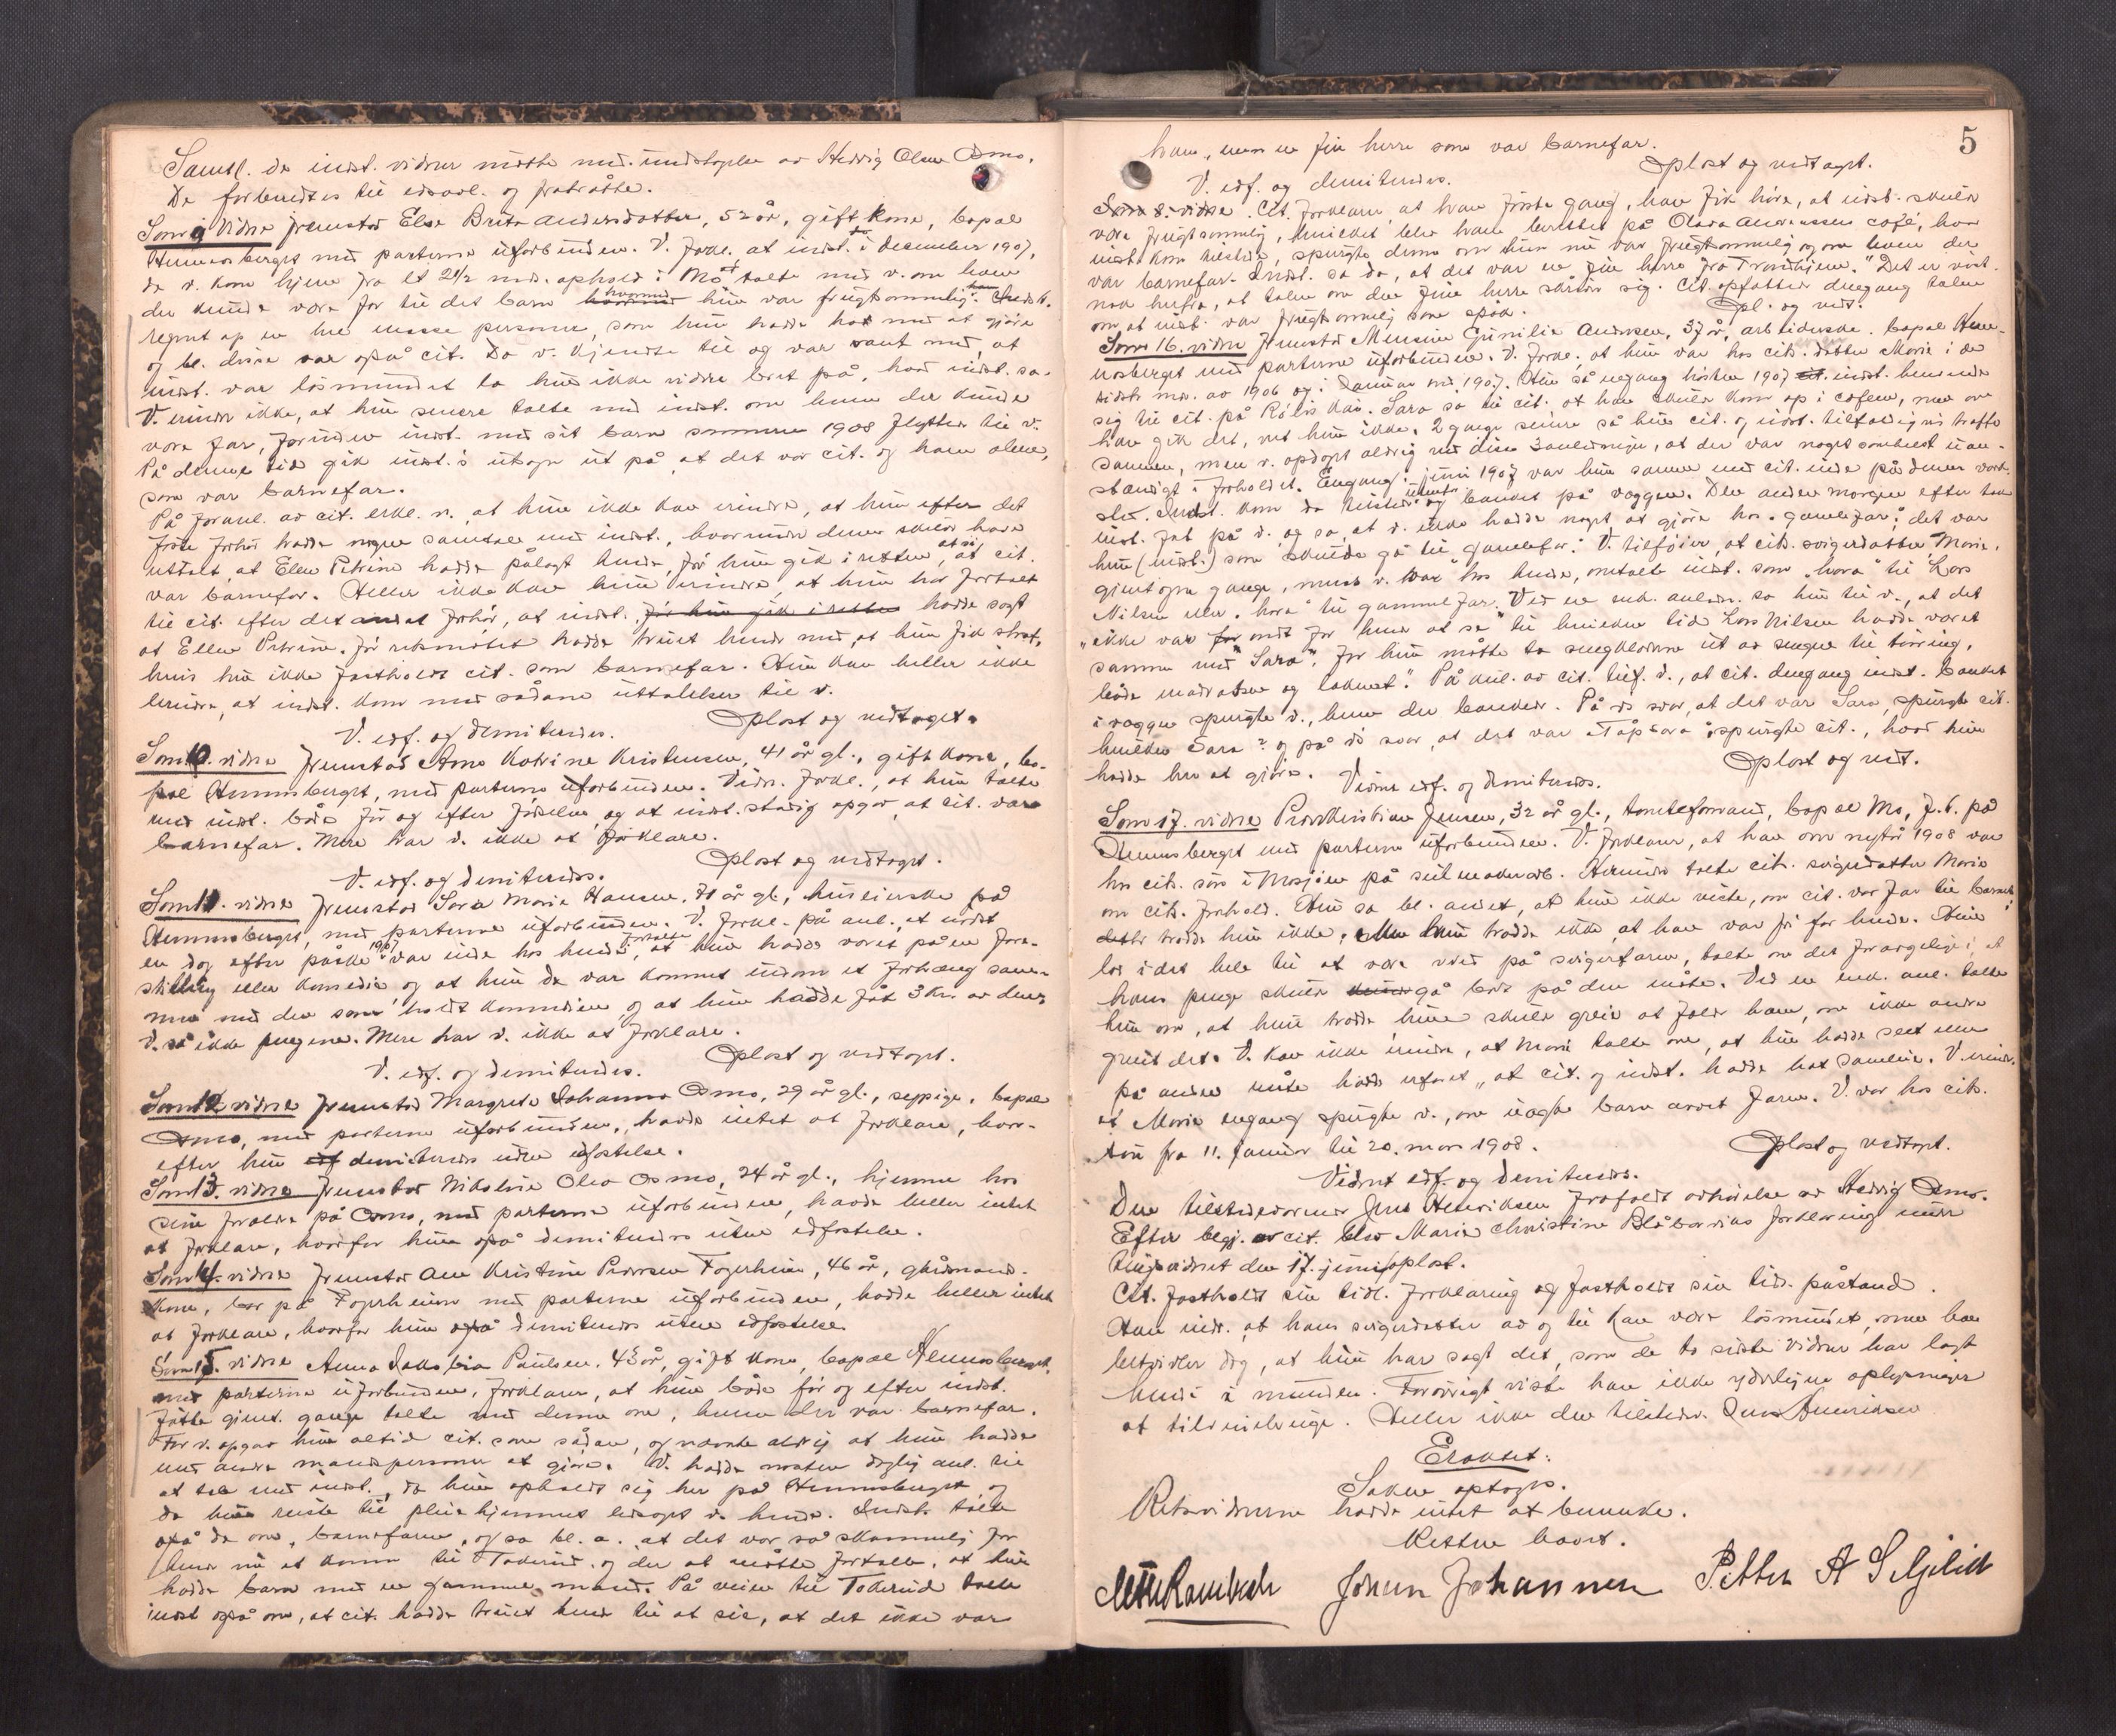 Samtl. de indst. vidner møtte med undtagelse av Hedvig Olsen Osmo.
De forberedtes til edsavl. og fratrådte.
Som 9 vidne fremstod Else Brita Andersdatter, 52 år, gift kone, bopæl
Hemnesberget med parterne uforbunden. V. forkl. at indst. i december 1907,
da v. kom hjem fra et 2½ mds. ophold i Mo talte med v. om hvem
der kunde være far til det barn hvormed hun var frugtsommelig. Indst.
regnet op en hel masse personer, som hun hadde hat med at gjøre
og bl. disse var også cit. Da v. kjendte til og var vant med, at
indst. var løsmundet la hun ikke videre vekt på, hvad indst. sa.
V. erindr ikke, at hun senere talte med indst. om hvem der kunde
være far, førinden indst. med sit barn sommeren 1908 flyttet til v.
På denne tid gik indst.s utsagn ut på, at det var cit. og ham alene,
som var barnefar.
På foranl. av cit. erkl. v., at hun ikke kan erindre, at hun efter det
første forhør hadde nogen samtale med indst., hvorunder denne skulde have
uttalt, at Ellen Petrine hadde pålagt hende, før hun gik i retten, at si, at cit.
var barnefar. Heller ikke kan hun erindre, at hun har fortalt
til cit. efter det andet forhør, at indst. før hun gik i retten hadde sagt
at Ellen Petrine før retsmøtet hadde truet hende med, at hun fik straf,
hvis hun ikke fastholdt cit. som barnefar. Hun kan heller ikke
erindre, at indst. kom med sådane uttalelser til v.
Oplæst og vedtaget.
V. edf. og demitteredes.
Som 10. vidne fremstod Anne Katrine Kristensen, 41 år gl., gift kone, bo-
pæl Hemnesberget, med parterne uforbunden. Vidn. forkl., at hun talte
med indst. både før og efter fødselen, og at indst. stadig opgav, at cit. var
barnefar. Mere har v. ikke at forklare.
Oplæst og vedtaget.
V. edf. og demitteredes.
Som 11. vidne fremstod Sara Marie Hansen, 71 år gl., huseierske på
Hemnesberget, med parterne uforbunden. V. forkl. på anl., at indst.
en dag efter påske 1907 var inde hos hende, fortalte at hun hadde været på en fore-
stilling eller komedie, og at hun da var kommet indom et forhæng sam-
men med den som holdt komedien og at hun hadde fåt 3 kr. av denne.
V. så ikke pengene. Mere har v. ikke at forklare.
Oplæst og vedtaget.
V. edf. og demitteredes.
Som 12 vidne fremstod Margrete Johanna Osmo, 29 år gl., seypige, bopæl
Osmo, med parterne uforbunden, hadde intet at forklare, hvor-
efter hun edf demitteredes uden edfæstelse.
Som 13. vidne fremstod Nikoline Olea Osmo, 24 år gl., hjemme hos
sine forældre på Osmo, med parterne uforbunden, hadde heller intet
at forklare, hvorfor hun også demitteredes uten edfæstelse.
Som 14. vidne fremstod Ane Kristine Pedersen Fagerheim, 46 år, gårdmands-
kone, bor på Fagerheim med parterne uforbunden, hadde heller intet
at forklare, hvorfor hun også demitteredes uten edfæstelse
Som 15. vidne Anna Jakobia Paulsen, 43 år, gift kone, bopæl Hemnesberget
med parterne uforbunden, forklarer, at hun både før og efter indst.
fødte gjent. gange talte med denne om, hvem der var barnefar.
For v. opgav hun altid cit. som sådan, og nævnte aldrig at hun hadde
med andre mandspersoner at gjøre. V. hadde næsten daglig anl. til
at tale med indst., da hun opholdt sig her på Hemnesberget, og
da hun reiste til pleiehjemmet ledsaget v. hende. Indst. talte
også da om, barnefaren, og sa bl. a., at det var så skammelig for
hende nu at komme til Toderud og der at måtte fortælle, at hun
hadde barn med en gammel mand. På veien til Toderud talte
indst også om, at cit. hadde truet hende til at sie, at det ikke var
5
ham, men en fin herre som var barnefar.
Oplæst og vedtaget.
V. edf. og demitteredes.
Som 8. vidne. Cit. forklarer, at hvor første gang, han fik høre, at indst. skulde
være frugtsommelig, hvilket blev ham berettet på Olava Andreassens café, hvor
indst. kom tilstede, spurgte denne om hun nu var frugtsommelig og om hvem der
var barnefar. Indst. sa da, at det var en fin herre fra Trondhjem. "Det er vist
nok herfra, at talen om den fine herre skriver sig. Cit. opfattet dengang talen
om at indst. var frugtsommelig som spøk. Opl. og vedt.
Som 16. vidne fremstod Mensine Gunilie Andersen, 37 år, arbeiderske. bopæl Hem-
nesberget med parterne uforbunden. V. forkl., at hun var hos cit. datter Marie i de
sidste mdr. av 1906 og i januar md. 1907. Hun så engang høsten 1907 cit. indst. henvende
sig til cit. på Råens kai. Sara sa til cit. at han skulde kom op i caféen, men om
han gik det, vet hun ikke. 2 gange senere så hun cit. og indst. tilfældigvis træffe
sammen, men v. opdaget aldrig ved disse 3 anledninger, at der var noget somhelst uan-
stændigt i forholdet. Engang i juni 1907 var hun sammen med cit. inde på denes værk-
sted. Indst. kom da tilstede utenfor og banket på væggen. Den anden morgen efter tok
indst. fat på v. og sa, at v. ikke hadde noget at gjøre hos "gamlefar", det var
hun (indst.) som skulde gå til gamlefar." V. tilføier, at cit. svigerdatter Marie,
gjentagne gange, mens v. var hos hende, omtalte indst. som "hora" til Lars
Nilsen eller "hora" til gammelfar. Ved en enk. anledn. sa hun til v., at det
"ikke var for ondt for hende at se" til hvilken tid Lars Nilsen hadde været
sammen med "Sara", for hun måtte ta sengklærne ut av sengen til tørring,
både madratsen og lakenet". På anl. av cit. tilf. v., at cit. dengang indst. banket
i væggen spurgte v., hvem der bankede. På vs svar, at det var Sara, spurgte cit.
hvilken Sara? og på vs svar, at det var "Tåp Sara" spurgte cit., hvad hun
hadde her at gjøre. Oplæst og vedt.
Vidnet edf. og demitteredes.
Som 17. vidne Peder Kristian Jensen, 32 år gl., tomteformand, bopæl Mo, f. t. på
Hemnesberget med parterne uforbunden. V. forklarer, at han om nytår 1908 var
hos cit. søn i Mosjøen på seilmakerarb. Herunder talte cit. svigerdatter Marie
om cit. forhold. Hun sa bl. andet, at hun ikke viste, om cit. var far til barnet;
dette trodde hun ikke, men hun trodde ikke, at han var fri for hende. Hun
lot i det hele til at være vred på svigerfaren, talte om det forargelige i, at
hans penge skulde gå bort på den måte. Ved en enk. anl. talte
hun om, at hun trodde hun skulde greie at fælde ham, om ikke andre
greit det. V. kan ikke erindre, at Marie talte om, at hun hadde seet eller
på anden måte hadde erfaret, at cit. og indst. hadde hat samleie. V. erindr.
at Marie engang spurgte v., om uægte barn arvet faren. V. var hos cit.
søn fra 11. januar til 20. mars 1908. Oplæst og vedtaget.
Vidnet edf. og demitteredes.
Den tilstedeværende Jens Henriksen frafaldt avhørelse av Hedvig Osmo.
Efter begj. av cit. blev Marie Christine Blåbærvika forklaring under
tingsvidnet den 17. juni oplæst.
Cit. fastholdt sin tidl. forklaring og fastholdt sin tidl. påstand.
Han indr., at hans svigerdatter av og til kan være løsmundet, men han
betvivler dog, at hun har sagt det, som de to sidste vidner har lagt
hende i munden. Forøvrigt viste han ikke yderligere oplysninger
at tilveiebringe. Heller ikke den tilstedev. Jens Henriksen
Eraktet:
Saken optages.
Retsvidnerne hadde intet at bemerke.
Retten hævet.
Johan Johannesen Petter A Seljelid